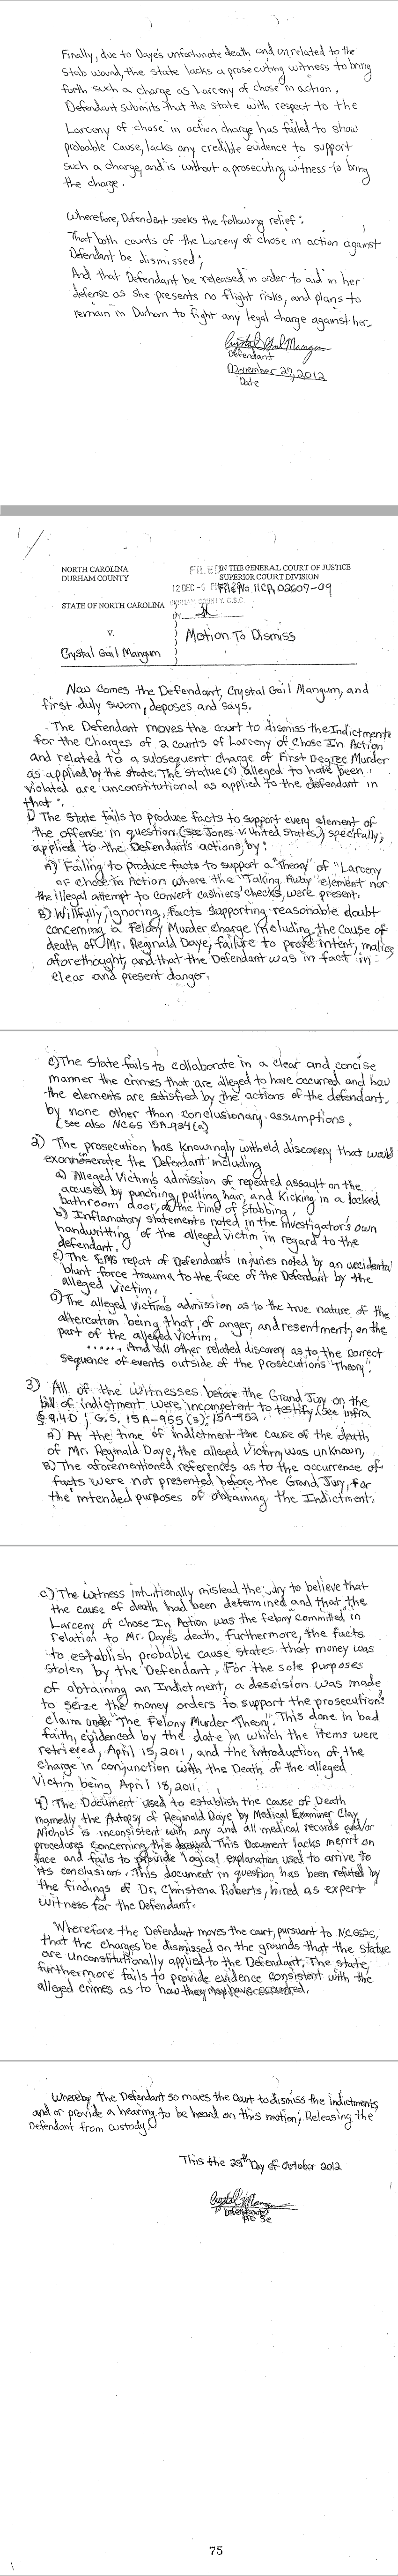 Finally, due to Daye's unfortunate death and unrelated to the
stab wound, the state lacks a prosecuting witness to bring
forth such a charge as Larceny of chose in action.
Defendant submits that the state with respect to the
Larceny of chose in action charge has failed to show
probable cause, lacks any credible evidence to support
such a charge, and is without a prosecuting witness to bring
the charge.
Wherefore, Defendant seeks the following relief:
That both counts of the Larceny of chose in action against
Defendant be dismissed;
And that Defendant be released in order to aid in her
defense as she presents no flight risks, and plans to
remain in Durham to fight any legal charge against her.
Crystal Gail Mangum
Defendant
November 27, 2012
Date
NORTH CAROLINA
DURHAM COUNTY
FILED IN THE GENERAL COURT OF JUSTICE
SUPERIOR COURT DIVISION
12 DEC -6 File No 11CR 02607-09
STATE OF NORTH CAROLINA
DURHAM COUNTY, C.S.C.
BY
V.
Motion To Dismiss
Crystal Gail Mangum
Now comes the Defendant, Crystal Gail Mangum, and
first duly sworn, deposes and says.
The Defendant moves the court to dismiss the Indictments
for the Charges of 2 counts of Larceny of Chose In Action
and related to a subsequent charge of First Degree Murder
as applied by the state. The statue(s) alleged to have been
violated are unconstitutional as applied to the defendant in
that:
1) The State fails to produce facts to support every element of
the offense in question (see Jones v United States), specifically,
applied to the Defendant's actions, by:
A) Failing to produce facts to support a "Theory" of "Larceny
of chose in Action where the "Taking Away" element nor
the illegal attempt to convert cashiers' checks, were present.
B) Willfully, ignoring, facts supporting reasonable doubt
concerning a Felony Murder charge including the cause of
death of Mr. Reginald Daye, failure to prove intent, malice
aforethought, and that the Defendant was in fact in
clear and present danger.
c) The State fails to collaborate in a clear and concise
manner the crimes that are alleged to have occurred and how
the elements are satisfied by the actions of the defendant.
by none other than conclusionary assumptions.
(See also NCGS 15A-924(a)
2) The prosecution has knowingly witheld discovery that would
exonnerate the Defendant including
a) Alleged Victim's admission of repeated assault on the
accused by punching, pulling hair, and kicking in a locked
bathroom door, at the time of stabbing,
b) Inflamatory statements noted in the investigator's own
handwriting of the alleged victim in regard to the
defendant.
c) The EMS report of Defendant's injuries noted by an accidental
blunt force trauma to the face of the Defendant by the
alleged Victim.
D) The alleged victims admission as to the true nature of the
altercation being that, of anger, and resentment, on the
part of the alleged victim.
...... And all other related discovery as to the correct
sequence of events outside of the prosecutions "Theory".
3) All of the Witnesses before the Grand Jury on the
bill of indictment were incompetent to testify (see infra
§ 9.4D ; G.S. 15A-955 (3); 15A-953.
A) At the time of indictment the cause of the death
of Mr. Reginald Daye, the alleged Victim, was unknown,
B) The aforementioned references as to the occurrence of
facts were not presented before the Grand Jury, for
the intended purposes of obtaining the Indictment.
c) The Witness intuitionally mislead the jury to believe that
the cause of death had been determined and that the
Larceny of chose In Action was the felony committed in
relation to Mr. Daye's death. Furthermore, the facts
to establish probable cause states that money was
stolen by the Defendant. For the sole purposes
of obtaining an Indictment, a descision was made
to seize the money orders to support the prosecution's
claim under "The Felony Murder Theory." This done in bad
faith, evidenced by the date in which the items were
retrieved, April 15, 2011, and the introduction of the
charge in conjunction with the Death of the alleged
Victim being April 18, 2011.
4) The Document used to establish the cause of Death
namedly the Autopsy of Reginald Daye by Medical Examiner Clay
Nichols is inconsistent with any and all medical records and/or
procedures concerning this. This Document lacks merit on
face and fails to provide logical explanation used to arrive to
its conclusions. This document in question has been refuted by
the findings of Dr. Christena Roberts, hired as expert
witness for the Defendant.
Wherefore the Defendant moves the court, pursuant to N.C.
that the charges be dismissed on the grounds that the statue
are unconstitutionally applied to the Defendant. The state,
furthermore fails to provide evidence consistent with the
alleged crimes as to how they may have occurred.
Whereby the Defendant so moves the Court to dismiss the indictments
and or provide a hearing to be heard on this motion; Releasing the
Defendant from custody.
This the 25th Day of October 2012
Crystal Mangum
Defendant
Pro Se
75